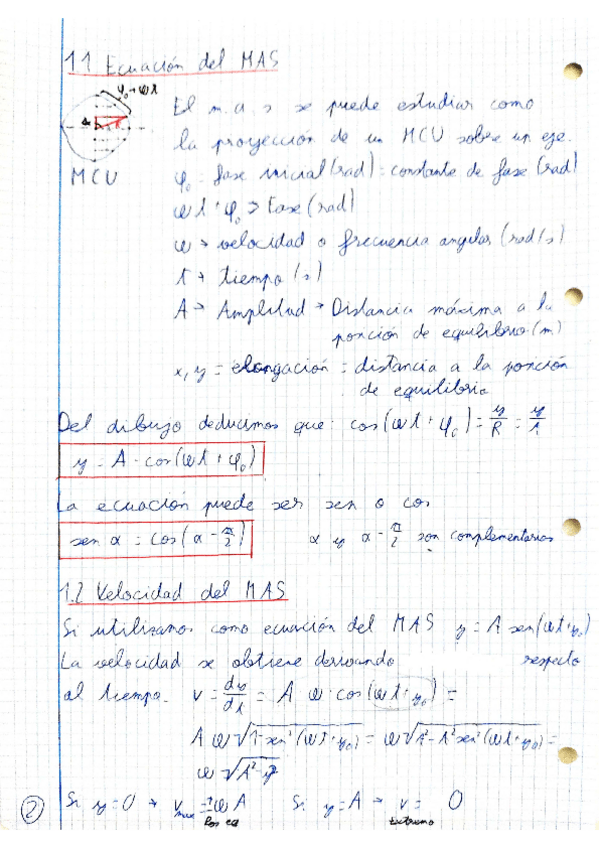 1.1 Ecuación del MAS
φ₀+ωt
MCU
El m.a.s se puede estudiar como
la proyección de un MCU sobre un eje.
φ₀ = fase inicial (rad) = constante de fase (rad)
ωt+φ₀ → fase (rad)
ω → velocidad o frecuencia angular (rad/s)
t → tiempo (s)
A → Amplitud → Distancia máxima a la
posición de equilibrio (m)
x, y = elongación = distancia a la posición
de equilibrio
Del dibujo deducimos que: cos(ωt+φ₀) = y/R = y/A
y = A·cos(ωt+φ₀)
La ecuación puede ser sen o cos
sen α = cos(α - π/2)   α y α - π/2 son complementarios
1.2 Velocidad del MAS
Si utilizamos como ecuación del MAS y = A sen(ωt+φ₀)
La velocidad se obtiene derivando respecto
al tiempo. v = dy/dt = A ω·cos(ωt+φ₀) =
A ω √1-sen²(ωt+φ₀) = ω √A²-A²sen²(ωt+φ₀) =
ω √A²-y²
Si y=0 → v max = ±ωA   Si y=A → v = 0
Pos eq   Extremo
2